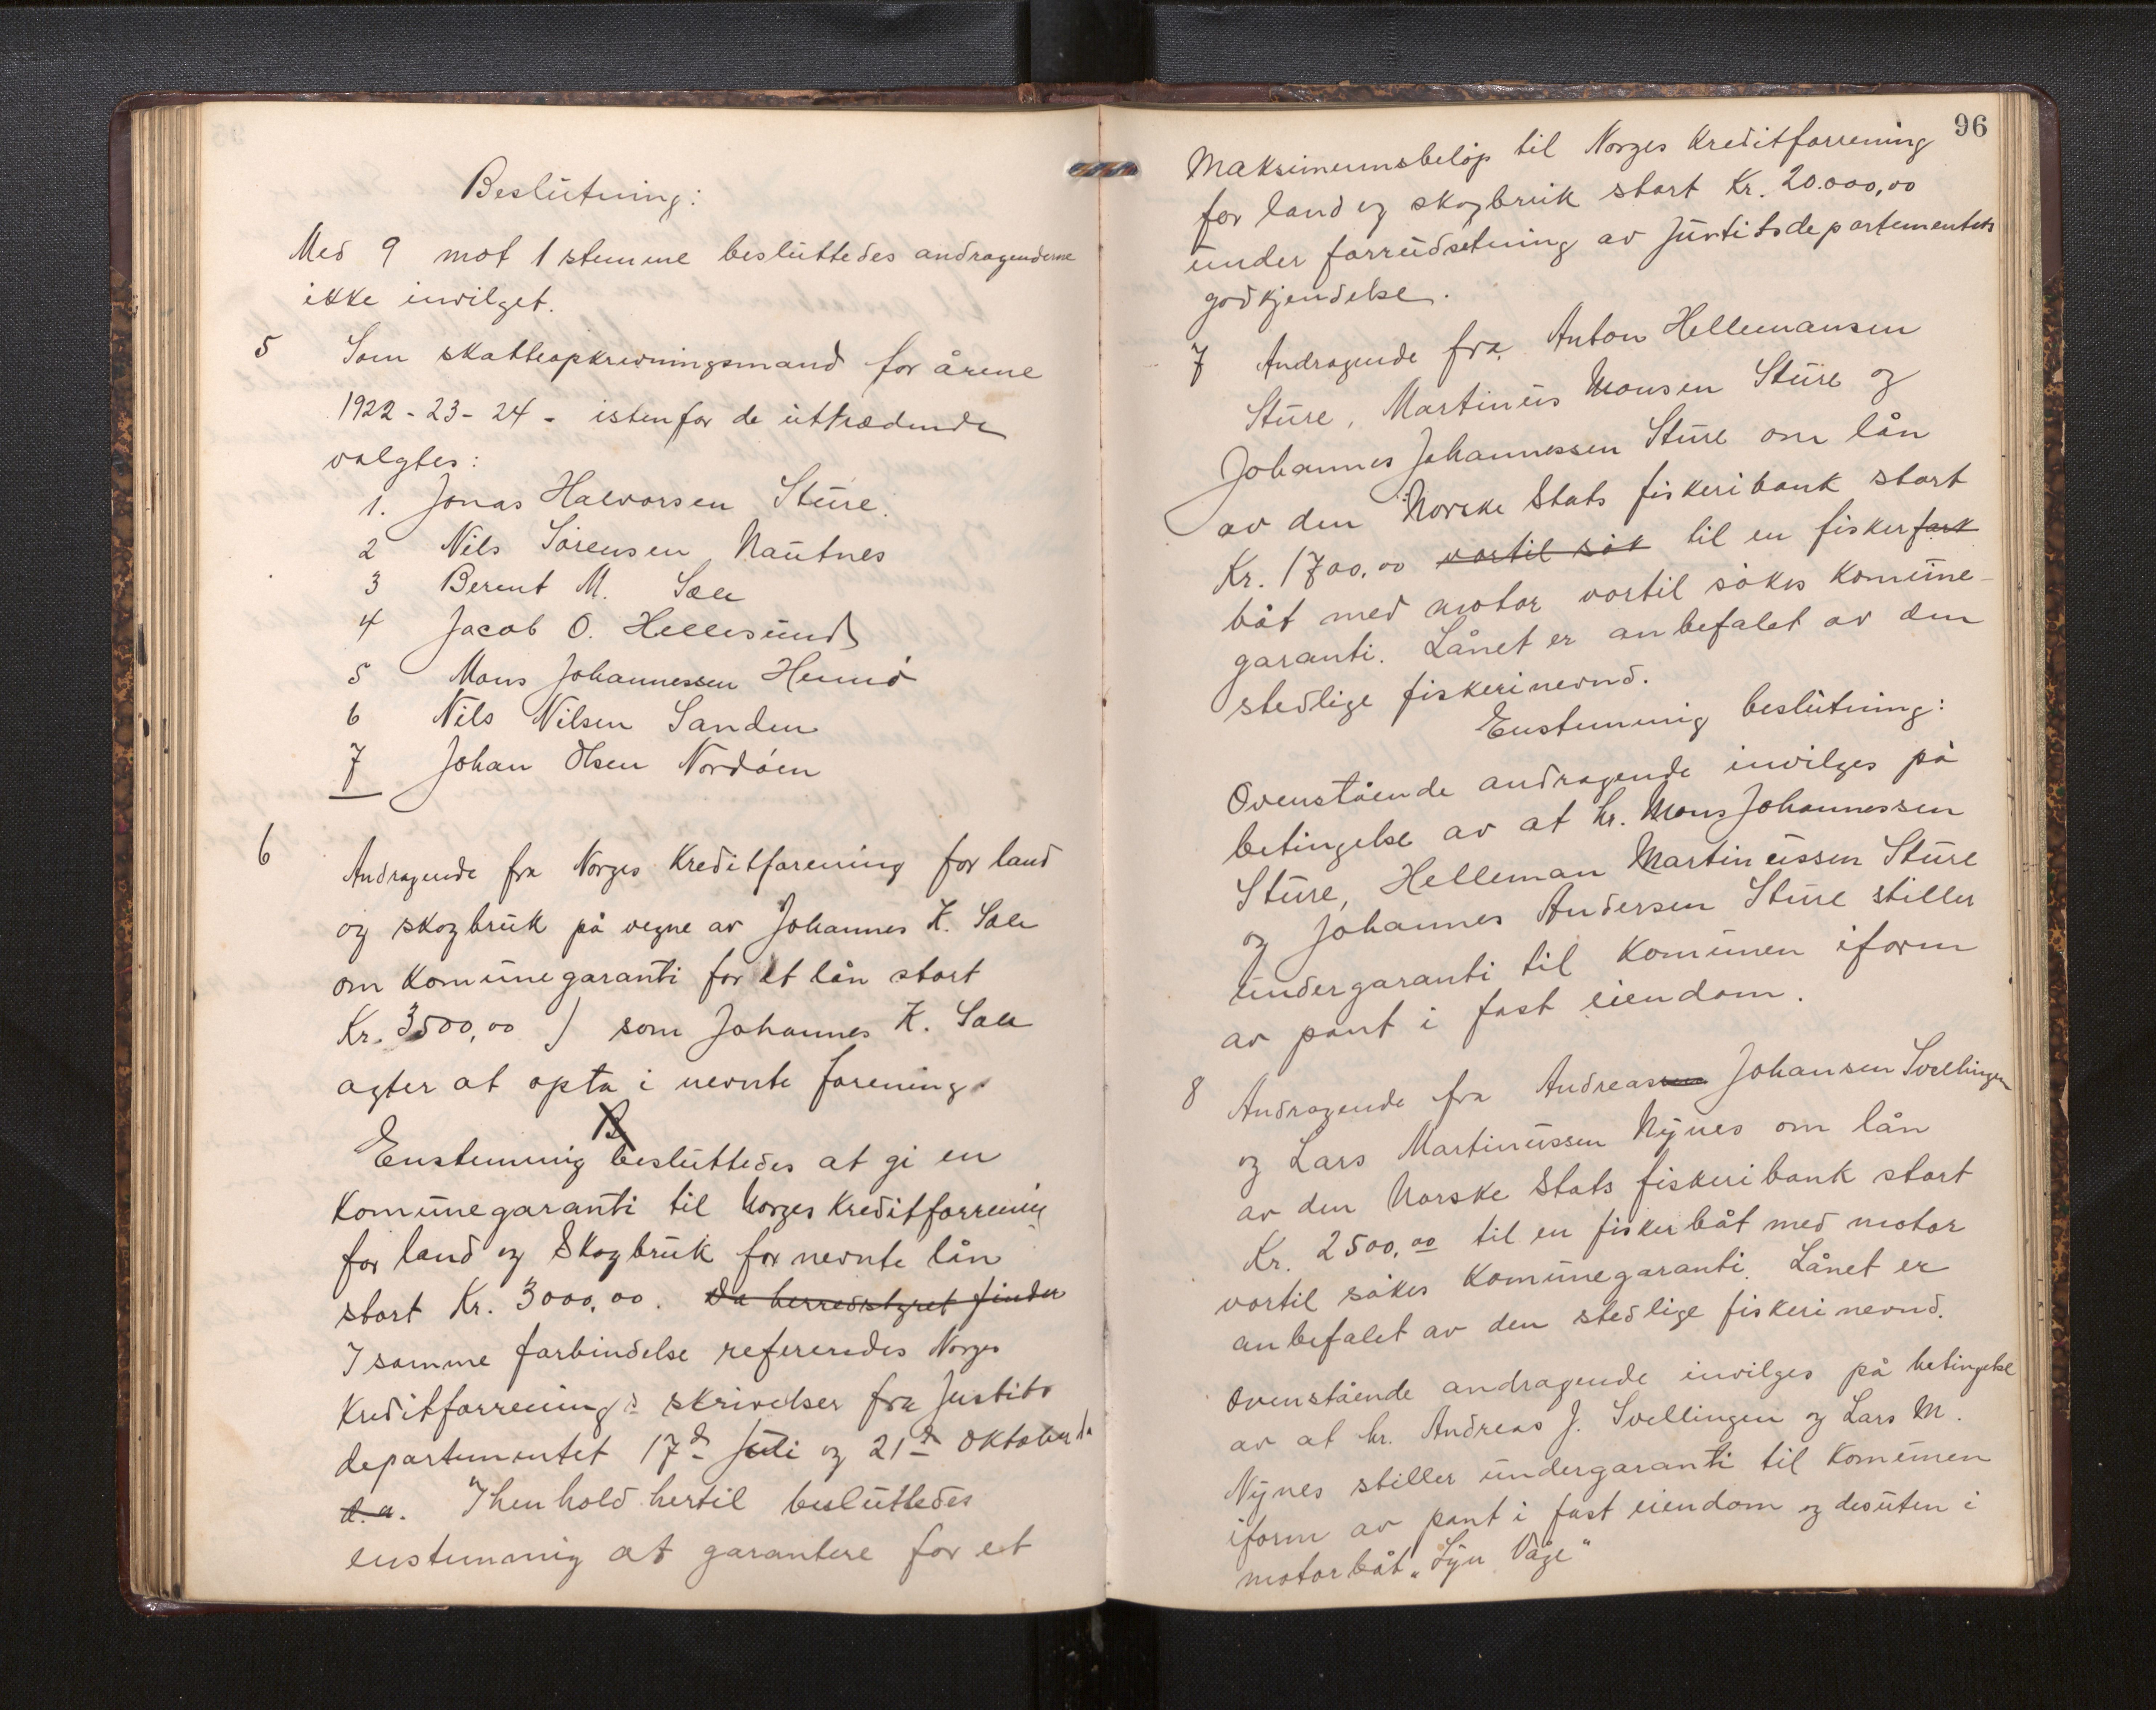 Beslutning:
Med 9 mot 1 stemme besluttedes andragenderne
ikke invilget.
5 Som skatteopkrevningsmand for årene
1922-23-24 - istenfor de uttrædende
valgtes:
1. Jonas Halvorsen Sture.
2 Nils Sörensen Nautnes
3 Berent M. Sæle
4 Jacob O. Hellesund
5 Mons Johannessen Hernö
6 Nils Nilsen Sanden
7 Johan Olsen Nordöen
6 Andragende fra Norges Kreditforening for land
og skogbruk på vegne av Johannes K. Sæle
om Komunegaranti for et lån stort
Kr. 3500,00 ) som Johannes K. Sæle
agter at opta i nevnte forening.
B
Enstemmig besluttedes at gi en
Komunegaranti til Norges Kreditforrening
for land og Skogbruk for nevnte lån
stort Kr. 3000,00. Da herredstyret finder
I samme forbindelse referendes Norges
Kreditforrenings skrivelser fra Justits
departementet 17d Juli og 21d Oktober
d.a. I henhold hertil besluttedes
enstemmig at garantere for et
96
Maksimumsbelöp til Norges Kreditforrening
for land og skogbruk stort Kr. 20.000,00
under forrudsetning av Justitsdepartementets
godkjendelse.
7 Andragende fra Anton Hellemansen
Sture, Martinus Monsen Sture og
Johannes Johannessen Sture om lån
av den Norske Stats fiskeribank stort
Kr. 1700,00 vortil sök til en fiskerfark
båt med motor vortil sökes Komune-
garanti. Lånet er anbefalet av den
stedlige fiskerinevnd.
Enstemmig beslutning:
Ovenstående andragende invilges på
betingelse av at hr. Mons Johannessen
Sture, Helleman Martinussen Sture
og Johannes Andersen Sture stiller
undergaranti til Komunen iform
av pant i fast eiendom.
8 Andragende fra Andreassen Johansen Svellingen
og Lars Martinussen Nynes om lån
av den Norske Stats fiskeribank stort
Kr. 2500,00 til en fiskerbåt med motor
vortil sökes Komunegaranti. Lånet er
anbefalet av den stedlige fiskerinevnd.
Ovenstående andragende invilges på betingelse
av at hr. Andreas J. Svellingen og Lars M.
Nynes stiller undergaranti til Komunen
iform av pant i fast eiendom og desuten i
motorbåt „Lyn Våge"